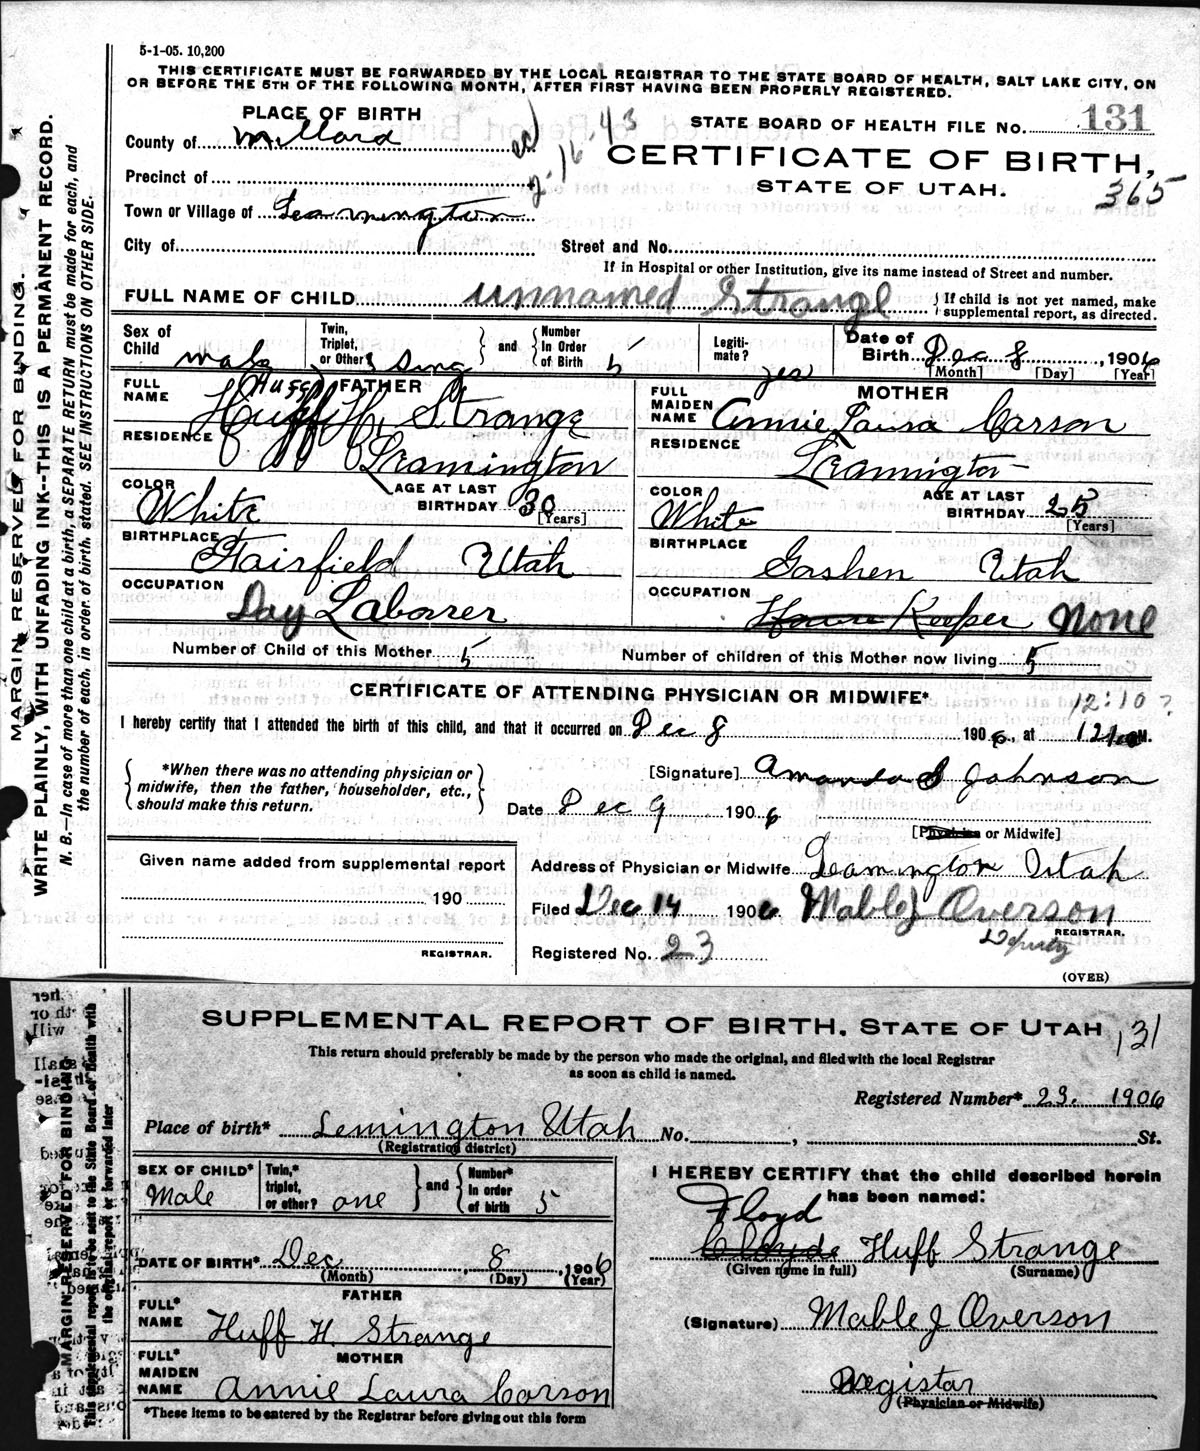 5-1-05. 10,200
THIS CERTIFICATE MUST BE FORWARDED BY THE LOCAL REGISTRAR TO THE STATE BOARD OF HEALTH, SALT LAKE CITY, ON
OR BEFORE THE 5TH OF THE FOLLOWING MONTH, AFTER FIRST HAVING BEEN PROPERLY REGISTERED.
PLACE OF BIRTH
County of Millard
Precinct of
Town or Village of Leamington
City of
STATE BOARD OF HEALTH FILE No. 131
CERTIFICATE OF BIRTH,
STATE OF UTAH.
365
Street and No.
If in Hospital or other Institution, give its name instead of Street and number.
FULL NAME OF CHILD unnamed Strange } If child is not yet named, make supplemental report, as directed.
Sex of Child male Twin, Triplet, or Other? Sing } and { Number In Order of Birth 5 Legitimate? yes Date of Birth Dec 8, 1906
[Month] [Day] [Year]
FULL NAME FATHER
Huff H. Strange
RESIDENCE
Leamington
COLOR White AGE AT LAST BIRTHDAY 30 [Years]
BIRTHPLACE
Fairfield Utah
OCCUPATION
Day Laborer
FULL MAIDEN NAME MOTHER
Annie Laura Carson
RESIDENCE
Leamington
COLOR White AGE AT LAST BIRTHDAY 25 [Years]
BIRTHPLACE
Goshen Utah
OCCUPATION
House Keeper None
Number of Child of this Mother 5 Number of children of this Mother now living 5
CERTIFICATE OF ATTENDING PHYSICIAN OR MIDWIFE*
12:10 ?
I hereby certify that I attended the birth of this child, and that it occurred on Dec 8 1906, at M.
{ *When there was no attending physician or midwife, then the father, householder, etc., should make this return. }
[Signature] Amanda S Johnson
Date Dec 9 1906
[Physician or Midwife]
Given name added from supplemental report
190
REGISTRAR.
Address of Physician or Midwife Leamington Utah
Filed Dec 14 1906 Mable J Overson
REGISTRAR.
Deputy
Registered No. 23
(OVER)
MARGIN RESERVED FOR BINDING.
WRITE PLAINLY, WITH UNFADING INK--THIS IS A PERMANENT RECORD.
N. B.—In case of more than one child at a birth, a SEPARATE RETURN must be made for each, and
the number of each, in order of birth, stated. SEE INSTRUCTIONS ON OTHER SIDE.
SUPPLEMENTAL REPORT OF BIRTH, STATE OF UTAH 131
This return should preferably be made by the person who made the original, and filed with the local Registrar
as soon as child is named.
Registered Number* 23. 1906
Place of birth* Lemington Utah No. , St.
(Registration district)
SEX OF CHILD* Male Twin,* triplet, or other? one } and { Number* in order of birth 5
DATE OF BIRTH* Dec, 8, 1906
(Month) (Day) (Year)
FATHER
FULL* NAME Huff H. Strange
MOTHER
FULL* MAIDEN NAME Annie Laura Carson
*These items to be entered by the Registrar before giving out this form
I HEREBY CERTIFY that the child described herein
has been named:
Floyd
Cloyde Huff Strange
(Given name in full) (Surname)
(Signature) Mable J Overson
Registar
(Physician or Midwife)
MARGIN RESERVED FOR BINDING
This supplemental report is to be sent to the State Board of Health with
the original report or forwarded later